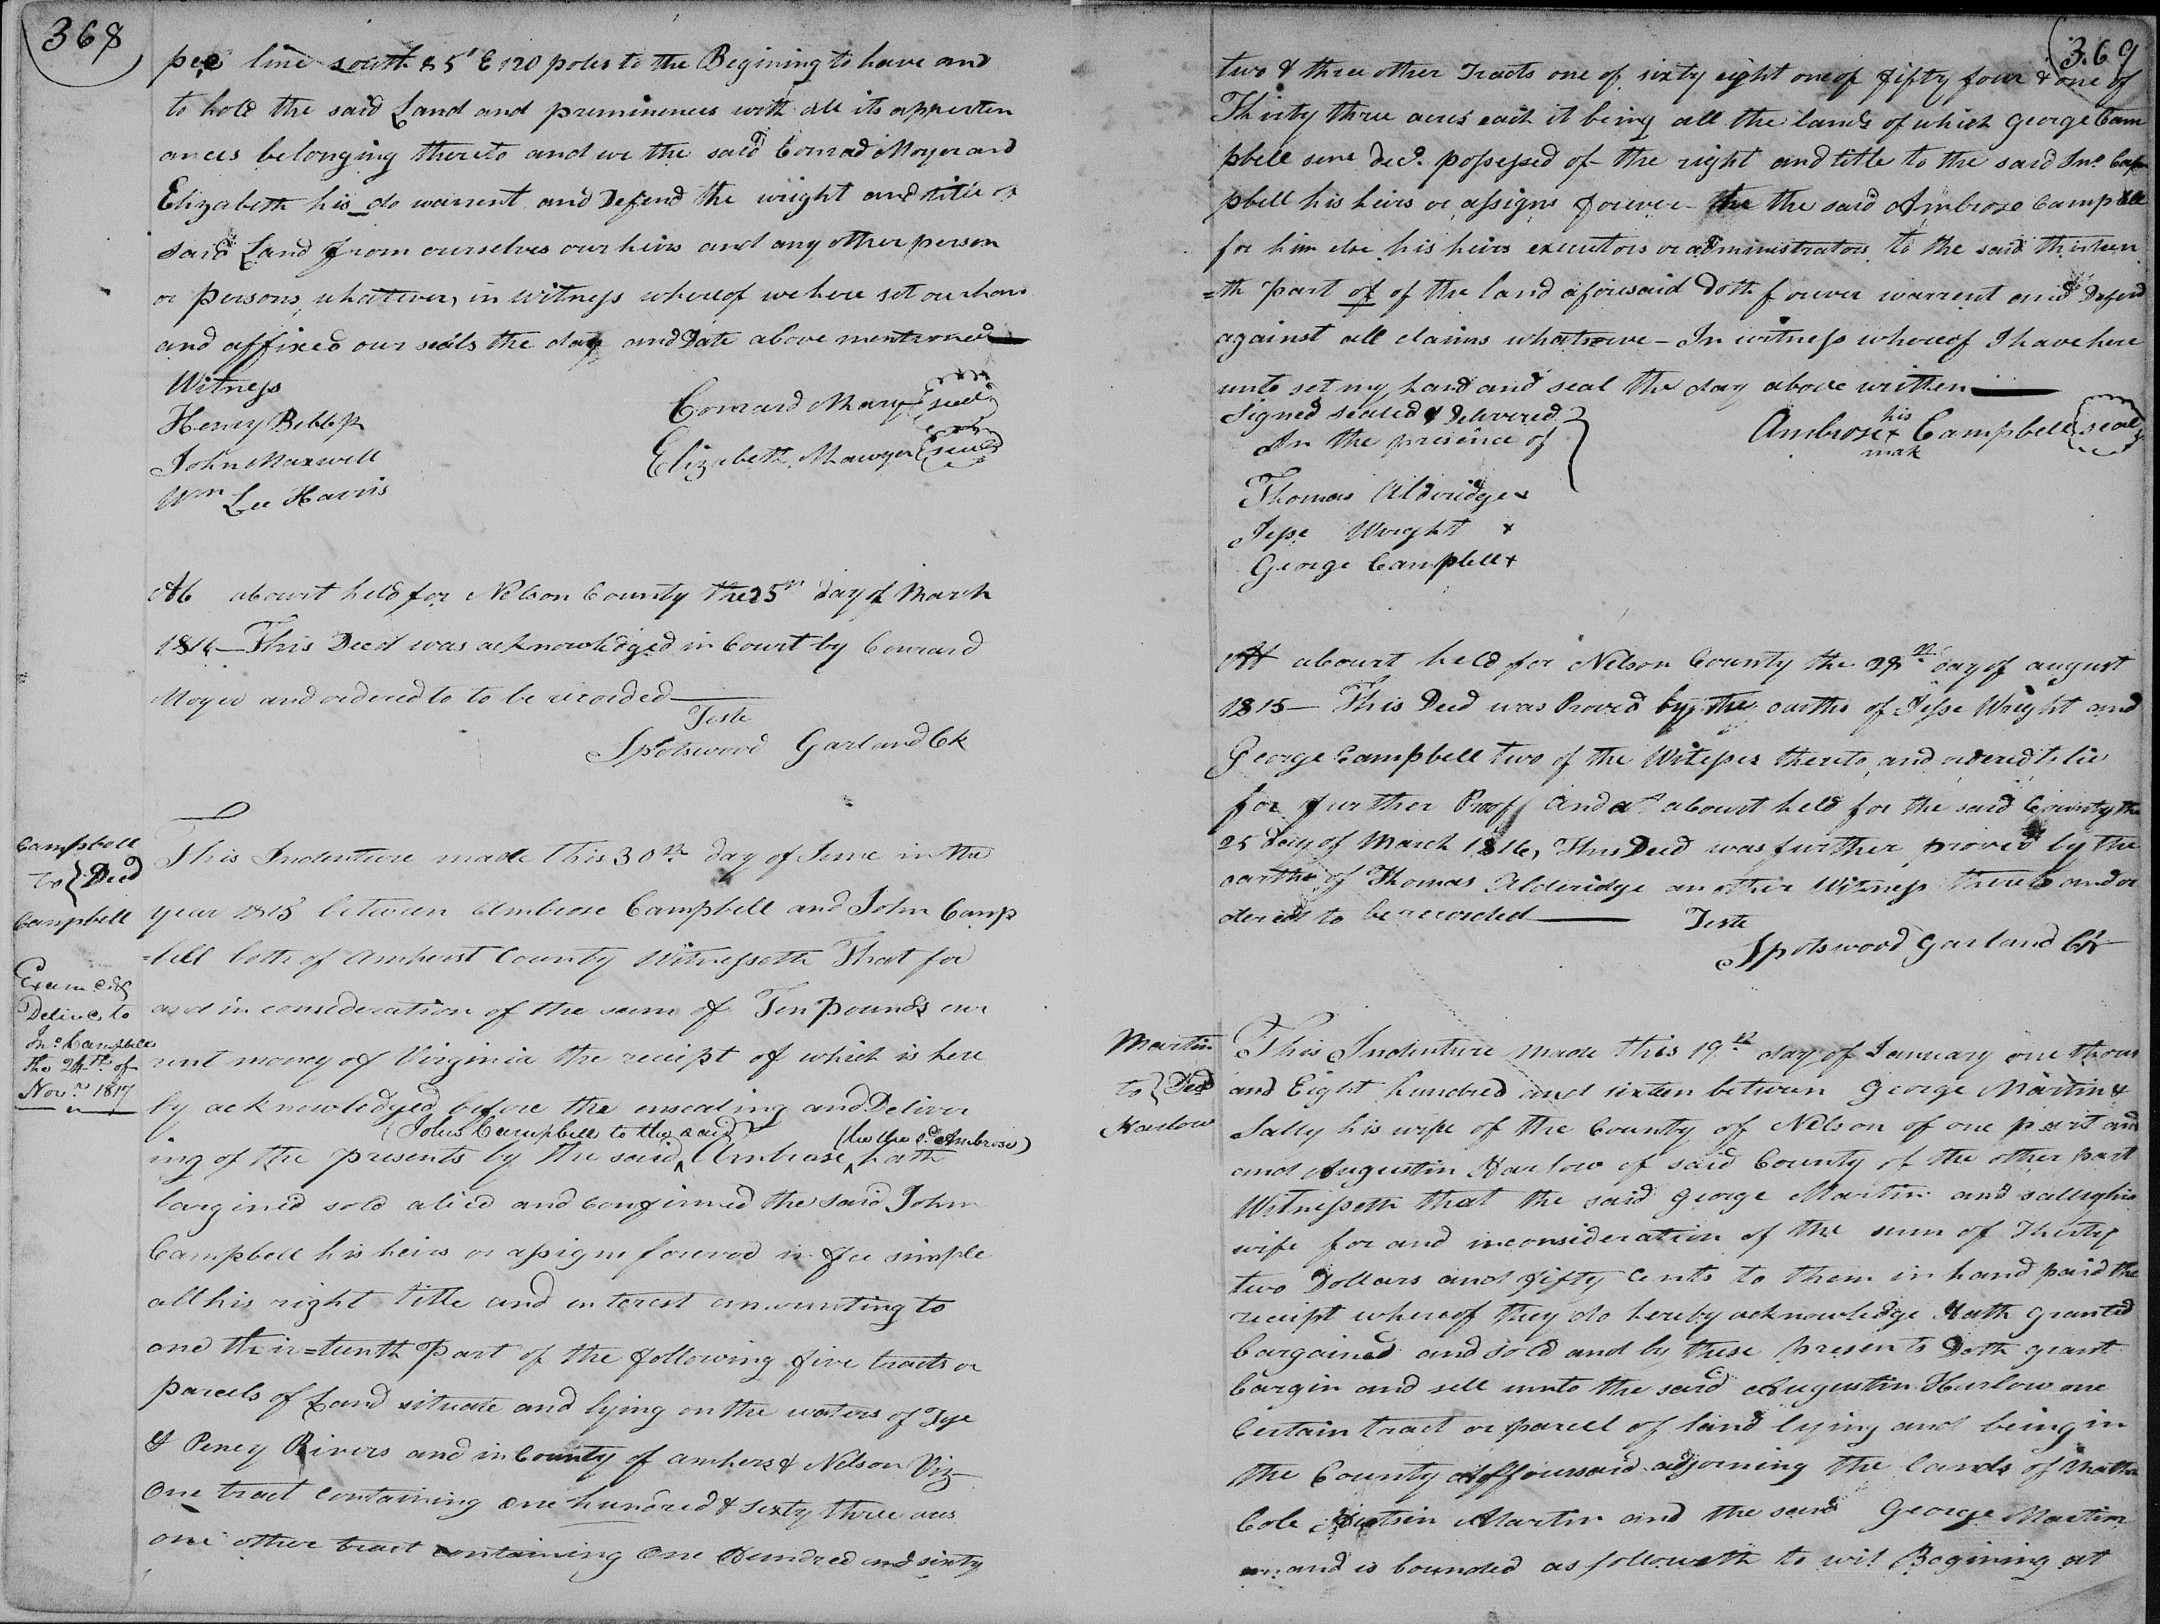 368
line south 85° E 120 poles to the Begining to have and
to hold the said Land and preminences with all its apperten
ances belonging thereto and we the said Conrad Moyer and
Elizabeth his do warrent and Defend the wright and title of
said Land from ourselves our heirs and any other person
or persons whatever, in witness whereof we here set our
and affixed our seals the day and Date above mentioned
Witness
Henry Bibb
John Maxwell
Wm Lee Harris
Conrard seal
Elizabeth Mawyer seal
At acourt held for Nelson County the 25th day of March
1816 This Deed was acknowledged in Court by Conrard
Moyer and ordered to to be recorded
Teste
Spotswood Garland Ck
Campbell
to } Deed
Campbell
Exam d &
Delive to
Jno Campbell
the 24th of
Novr 1817
This Indenture made this 30th day of June in the
year 1815 between Ambrose Campbell and John Camp
=bell both of Amherst County Witnesseth That for
and in consideration of the sum of Ten pounds cur
rent money of Virginia the receipt of which is here
by acknowledged before the ensealing and Deliver
(John Campbell to the said) (he the sd Ambrose)
ing of the presents by the said ^ Ambrose ^ hath
bargined sold alied and confirmed the said John
Campbell his heirs or assigns forever in fee simple
all his right title and interest amounting to
one thir=teenth Part of the following five tracts or
parcels of Land situate and lying on the waters of Tye
& Peney Rivers and in County of amherst & Nelson Viz
One tract containing one hundred & sixty three acres
one other tract containing One Hundred and sixty
369
two & three other Tracts one of sixty eight one of fifty four & one of
Thirty three acres each it being all the lands of which George Cam
pbell senr decd. possessed of the right and title to the said Jno. Camp
pbell his heirs or assigns forever the the said Ambrose Campbell
for him his heirs executors or administrators, to the said thirteen
=th part of of the land aforesaid Doth forever warrent and Defend
against all claims whatsoever - In witness whereof I have here
unto set my hand and seal the day above written
Signed sealed & Delivered
In the presence of
Thomas Alderidge x
Jesse Wright x
George Campbell x
his
Ambrose x Campbell seal
mark
At acourt held for Nelson County the 28th day of august
1815 - This Deed was Proved by the oaths of Jesse Wright and
George Campbell two of the Witesses thereto, and ordered to lie
for further Proof and at acourt held for the said County the
25 day of March 1816, This Deed was further proved by the
oarth of Thomas Alderidge an other Witness thereto and or
dered to be recorded
Teste
Spotswood Garland Ck
Martin
to } Deed
Harlow
This Indenture Made this 19th day of January one thous
and Eight hundred and sixteen between George Martin &
Sally his wife of the County of Nelson of one part and
and Augustin Harlow of said County of the other part
Witnesseth that the said George Martin and sally his
wife for and inconsideration of the sum of Thirty
two Dollars and fifty cents to them in hand paid the
receipt whereof they do hereby acknowledge Hath granted
bargained and sold and by these presents Doth grant
bargin and sell unto the said Augustin Harlow one
certain tract or parcel of land lying and being in
the County adjoining the lands of
Cole Martin and the said George Martin
and is bounded as followeth to wit Begining at